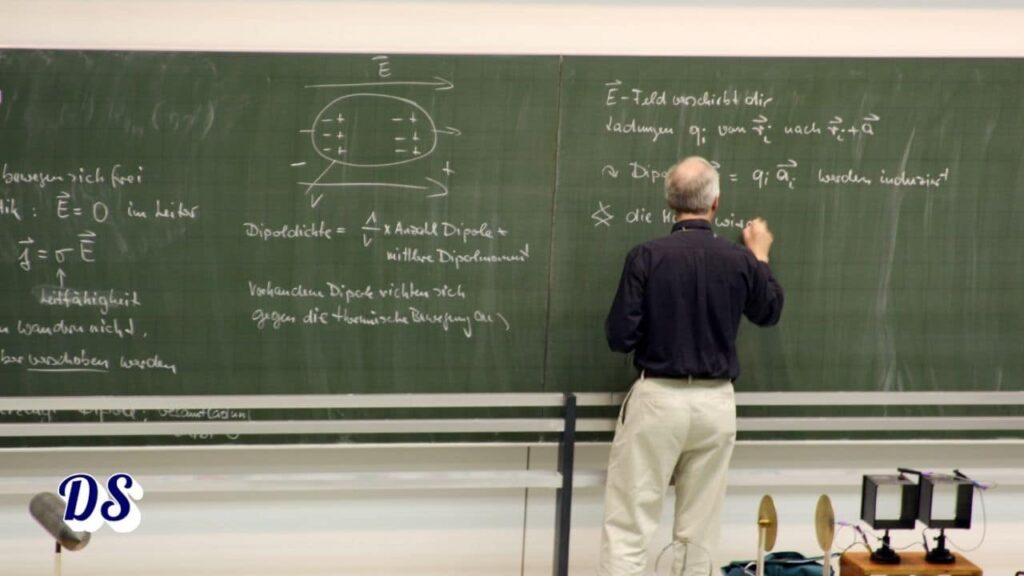 bewegen sich frei
E⃗ = 0 im Leiter
j⃗ = σ E⃗
Leitfähigkeit
wandern nicht,
verschoben werden
E⃗
- + - +
- + - +
- + - +
- +
V
Dipoldichte = 1/V × Anzahl Dipole *
mittleres Dipolmoment
Vorhandene Dipole richten sich
gegen die thermische Bewegung
E⃗-Feld verschiebt die
Ladungen qᵢ von r⃗ᵢ nach r⃗ᵢ + a⃗
= qᵢ a⃗ᵢ werden induziert
die
DS